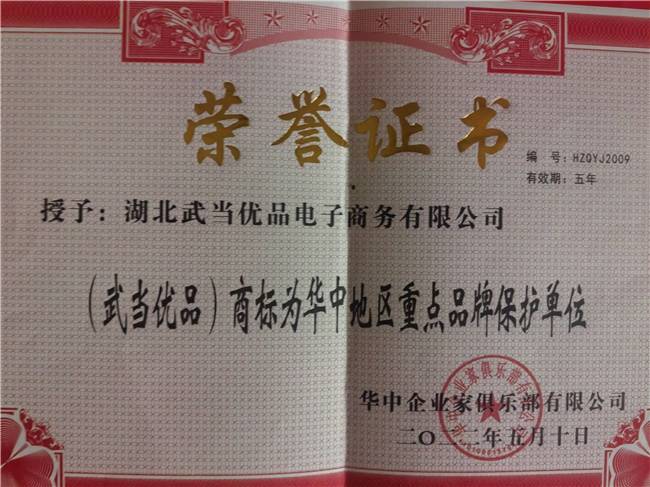 荣誉证书
编 号：HZQYJ2009
有效期：五年
授予：湖北武当优品电子商务有限公司
（武当优品）商标为华中地区重点品牌保护单位
华中企业家俱乐部有限公司
二〇二二年五月十日